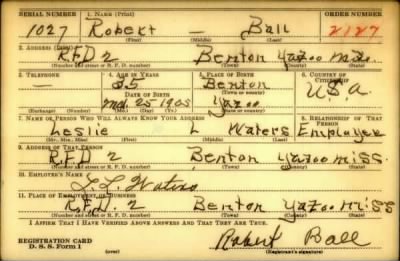 SERIAL NUMBER 1. NAME (Print) ORDER NUMBER
1027 Robert — Ball 2127
(First) (Middle) (Last)
2. ADDRESS (Print)
R.F.D 2 Benton Yazoo Miss.
(Number and street or R. F. D. number) (Town) (County) (State)
3. TELEPHONE 4. AGE IN YEARS 5. PLACE OF BIRTH 6. COUNTRY OF CITIZENSHIP
— 35 Benton
DATE OF BIRTH (Town or county) U.S.A
25 1905 Yazoo
(Exchange) (Number) (Mo.) (Day) (Yr.) (State or country)
7. NAME OF PERSON WHO WILL ALWAYS KNOW YOUR ADDRESS 8. RELATIONSHIP OF THAT PERSON
Leslie L Waters Employer
(Mr., Mrs., Miss) (First) (Middle) (Last)
9. ADDRESS OF THAT PERSON
R.F.D 2 Benton Yazoo Miss.
(Number and street or R. F. D. number) (Town) (County) (State)
10. EMPLOYER'S NAME
L. L. Waters
11. PLACE OF EMPLOYMENT OR BUSINESS
R.F.D. 2 Benton Yazoo Miss
(Number and street or R. F. D. number) (Town) (County) (State)
I AFFIRM THAT I HAVE VERIFIED ABOVE ANSWERS AND THAT THEY ARE TRUE.
Robert Ball
REGISTRATION CARD
D. S. S. Form 1 (over) (Registrant's signature)